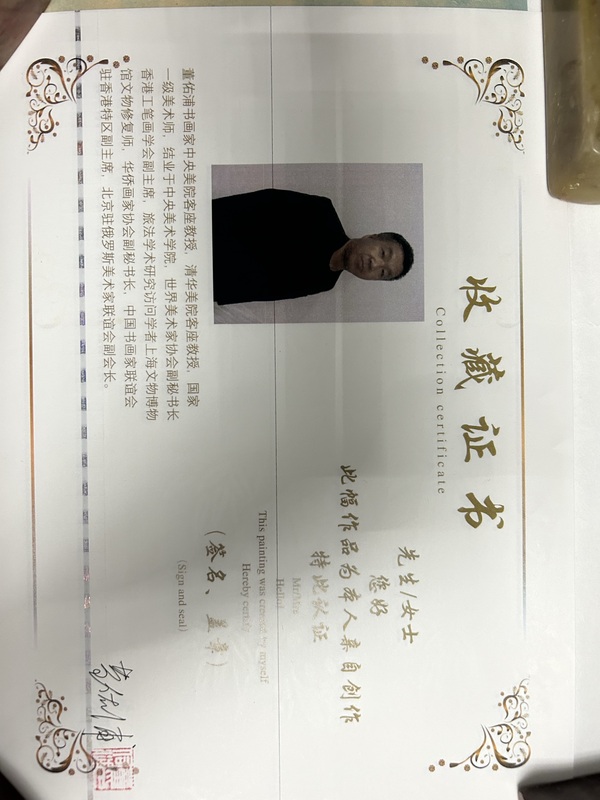 收藏证书
Collection certificate
先生/女士
您好
此幅作品为本人亲自创作
特此认证
Mr/Mrs
Hello!
This painting was created by myself
Hereby certify
(签名、盖章)
(Sign and seal)
董佑浦书画家中央美院客座教授，清华美院客座教授，国家
一级美术师，结业于中央美术学院，世界美术家协会副秘书长
香港工笔画学会副主席，旅法学术研究访问学者上海文物博物
馆文物修复师，华侨画家协会副秘书长，中国书画家联谊会
驻香港特区副主席，北京驻俄罗斯美术家联谊会副会长。